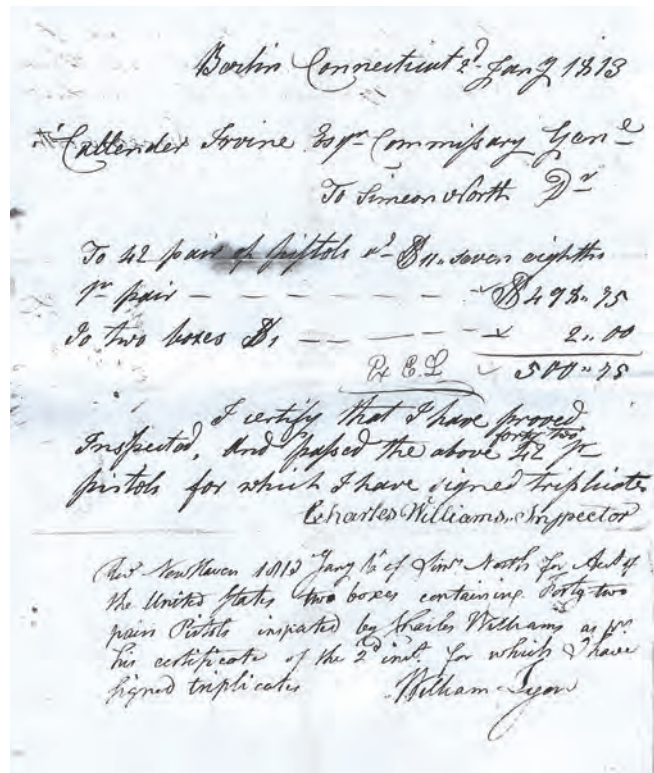 Berlin Connecticut 2d Jany 1813
Callender Irvine Esqr Commissary Genl
To Simeon North Dr
To 42 pair of pistols at $11,, seven eighths
pr pair — — — — — — $498,,75
To two boxes $1 — — — — 2,,00
Px E.L 500,,75
I certify that I have proved
Inspected, and passed the above forty two 42 pr
pistols for which I have signed triplicates
Charles Williams,, Inspector
Recd New Haven 1813 Jany of Simn North for Act of
the United States two boxes containing Forty-two
pairs Pistols inspected by Charles Williams as pr
his certificate of the 2d inst. for which I have
signed triplicates William Lyon